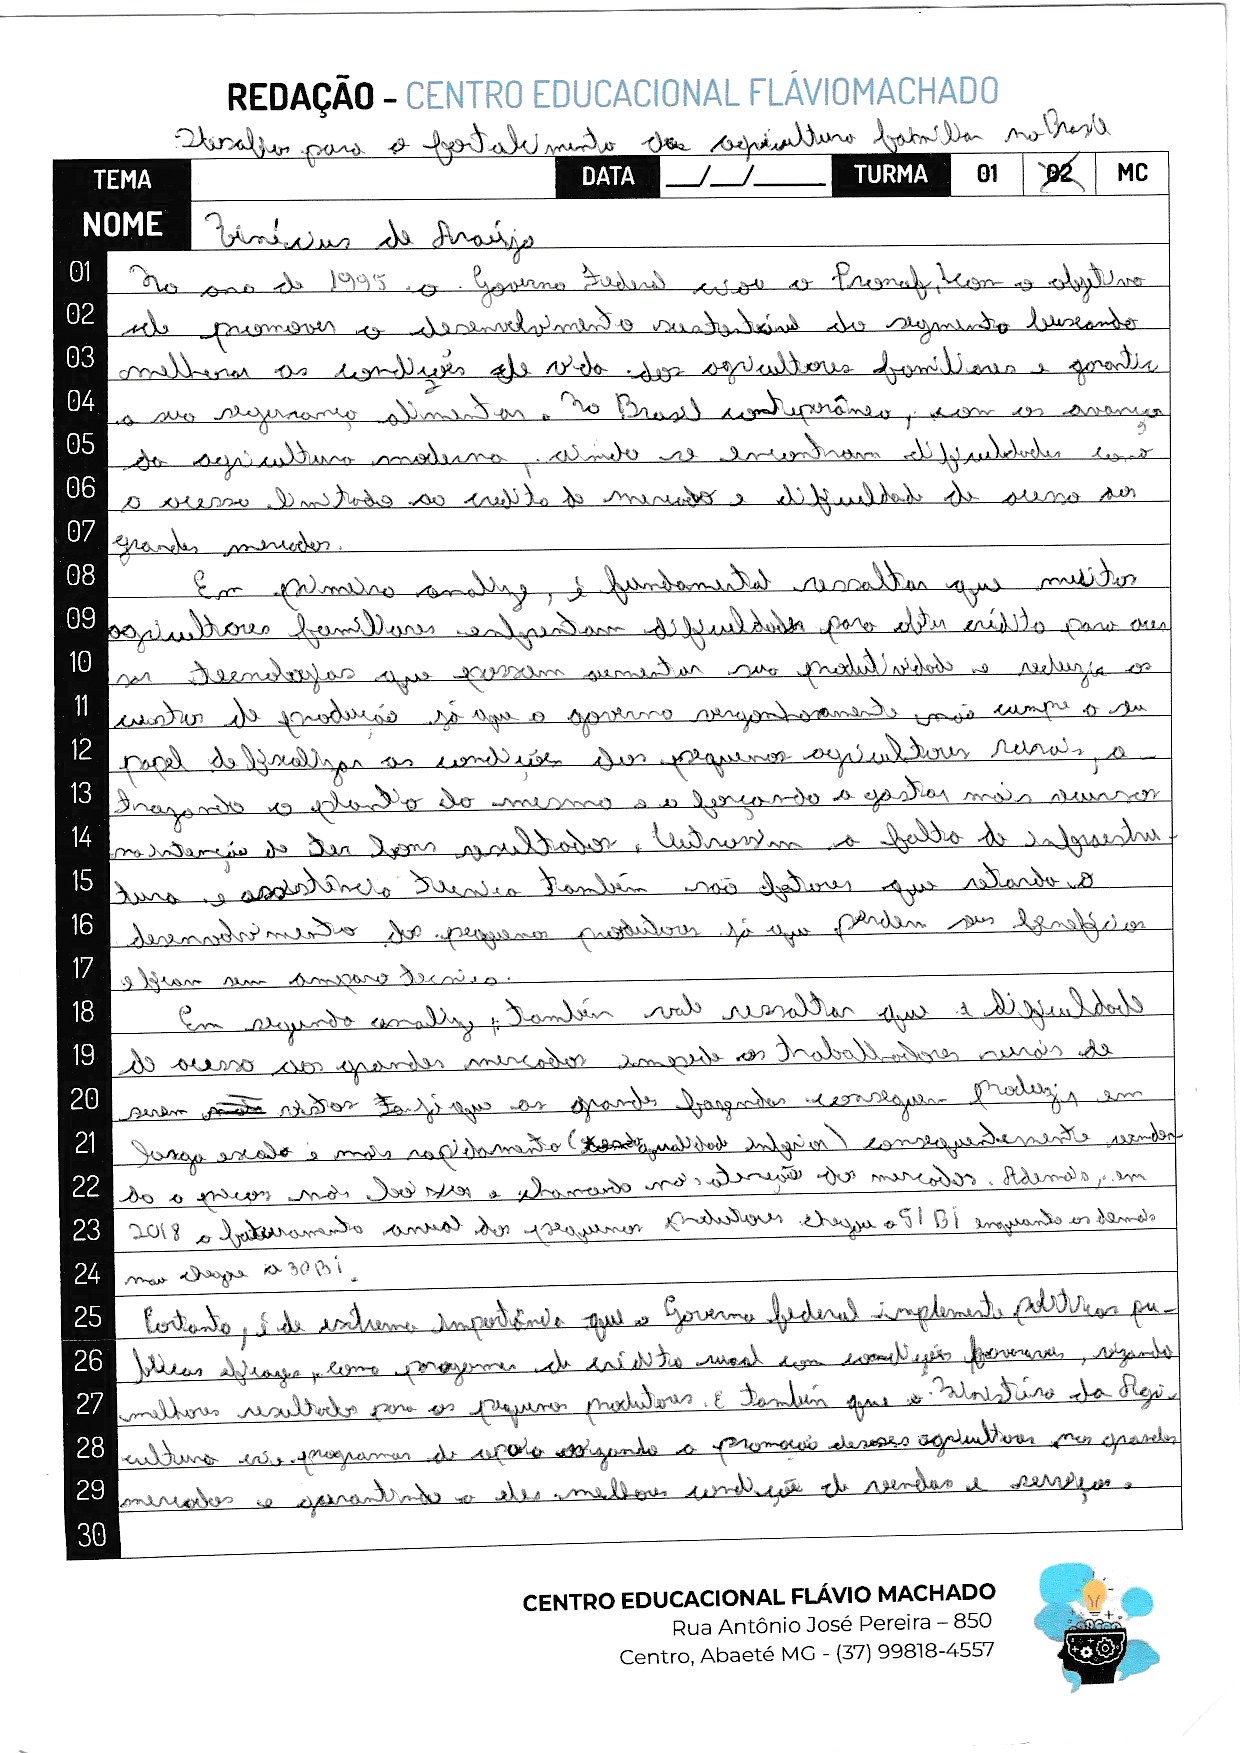 REDAÇÃO - CENTRO EDUCACIONAL FLÁVIOMACHADO
Desafios para o fortalecimento das agricultura familiar no Brasil
TEMA DATA __/__/____ TURMA 01 02 MC
NOME Vinícius de Araújo
01 No ano de 1995 o Governo Federal criou o Pronaf, com o objetivo
02 de promover o desenvolvimento sustentável do segmento buscando
03 melhorar as condições de vida dos agricultores familiares e garantir
04 a sua segurança alimentar. No Brasil contemporâneo, com os avanços
05 da agricultura moderna, ainda se encontram dificuldades como
06 o acesso limitado ao credito de mercado e dificuldade de acesso aos
07 grandes mercados.
08 Em primeiro analize, é fundamental ressaltar que muitos
09 agricultores familiares enfrentam dificuldades para obter crédito para aces
10 sar tecnologias que possam aumentar sua produtividade e reduzir os
11 custos de produção já que o governo vergonhosamente não cumpre o seu
12 papel de fixalizar as condições dos pequenos agricultores rurais, a-
13 trazando o plantio do mesmo e a forçando a gastar mais recursos
14 na intenção de ter bons resultados. Outrossim a falta de infraestru-
15 tura e assistência tecnica também são fatores que retarda o
16 desenvolvimento do pequeno produtores já que perdem seus benefícios
17 e ficam sem amparo tecnico.
18 Em segundo analize, também vale ressaltar que e dificuldade
19 de acesso aos grandes mercados impede os trabalhadores rurais de
20 serem vistos já que as grandes fazendas conseguem produzir em
21 larga escala e mais rapidamente (qualidade inferior) consequentemente venden-
22 do a preços mais baixos e chamando mais atenção dos mercados. Ademais, em
23 2018 o faturamento anual dos pequenos produtores chegou a 91 BI enquanto os demais
24 nao chegou a 30 BI.
25 Portanto, é de extrema importância que o Governo federal implemente políticas pu-
26 blicas eficazes, como programas de crédito rural com condições favoraveis, vizando
27 melhores resultados para os pequenos produtores. E também que o Ministério da Agri-
28 cultura crie programas de apoio vizando a promoção desses agricultores nos grandes
29 mercados e garantindo a eles melhores condição de vendas e serviços.
30
CENTRO EDUCACIONAL FLÁVIO MACHADO
Rua Antônio José Pereira – 850
Centro, Abaeté MG - (37) 99818-4557